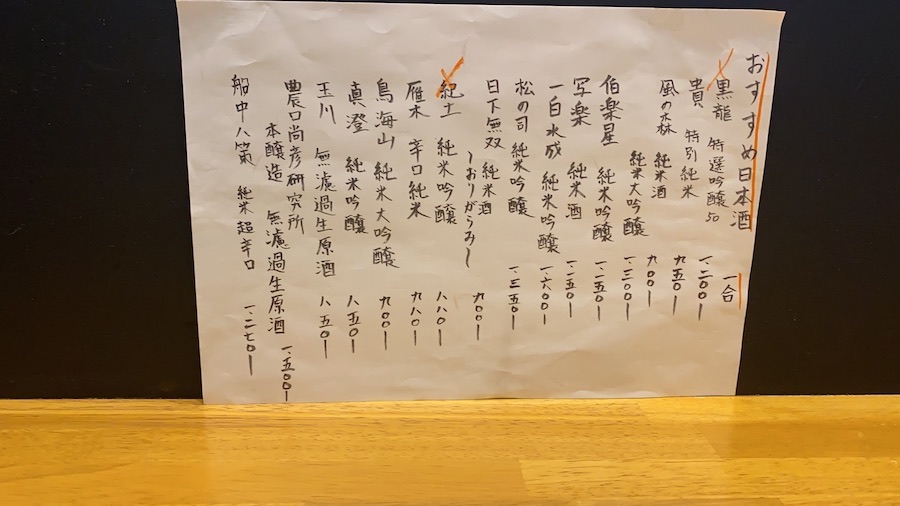 おすすめ日本酒 一合
黒龍 特選吟醸50 一、二〇〇ー
貴 特別純米 九五〇ー
風の森 純米酒 九〇〇ー
純米大吟醸 一、三〇〇ー
伯楽星 純米吟醸 一、一五〇ー
写楽 純米酒 一、一五〇ー
一白水成 純米吟醸 一、六〇〇ー
松の司 純米吟醸 一、三五〇ー
日下無双 純米酒 九〇〇ー
〜おりがらみ〜
紀土 純米吟醸 八八〇ー
雁木 辛口純米 九八〇ー
鳥海山 純米大吟醸 九〇〇ー
真澄 純米吟醸 八五〇ー
玉川 無濾過生原酒 八五〇ー
農口尚彦研究所
本醸造 無濾過生原酒 一、五〇〇ー
船中八策 純米超辛口 一、二七〇ー